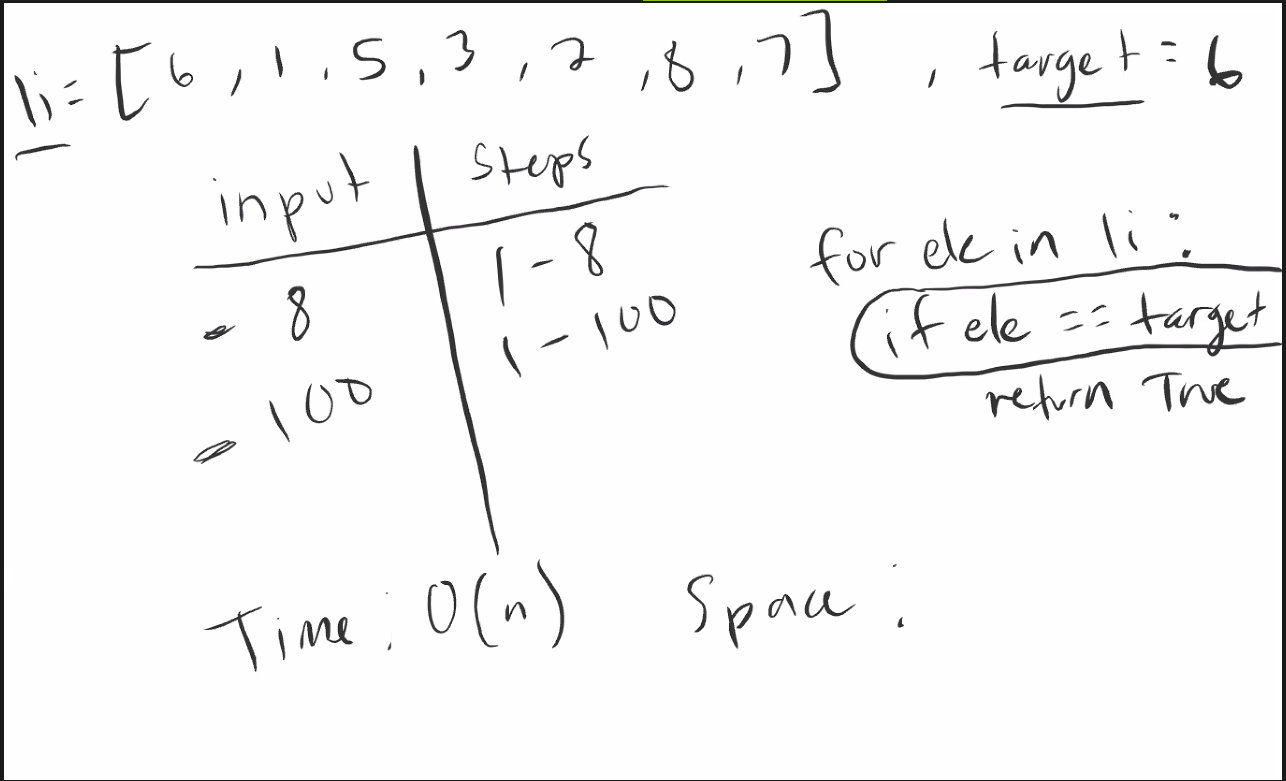 li = [6, 1, 5, 3, 2, 8, 7], target = 6
input steps
- 8 1 - 8
- 100 1 - 100
for ele in li:
if ele == target
return True
Time: O(n) Space: